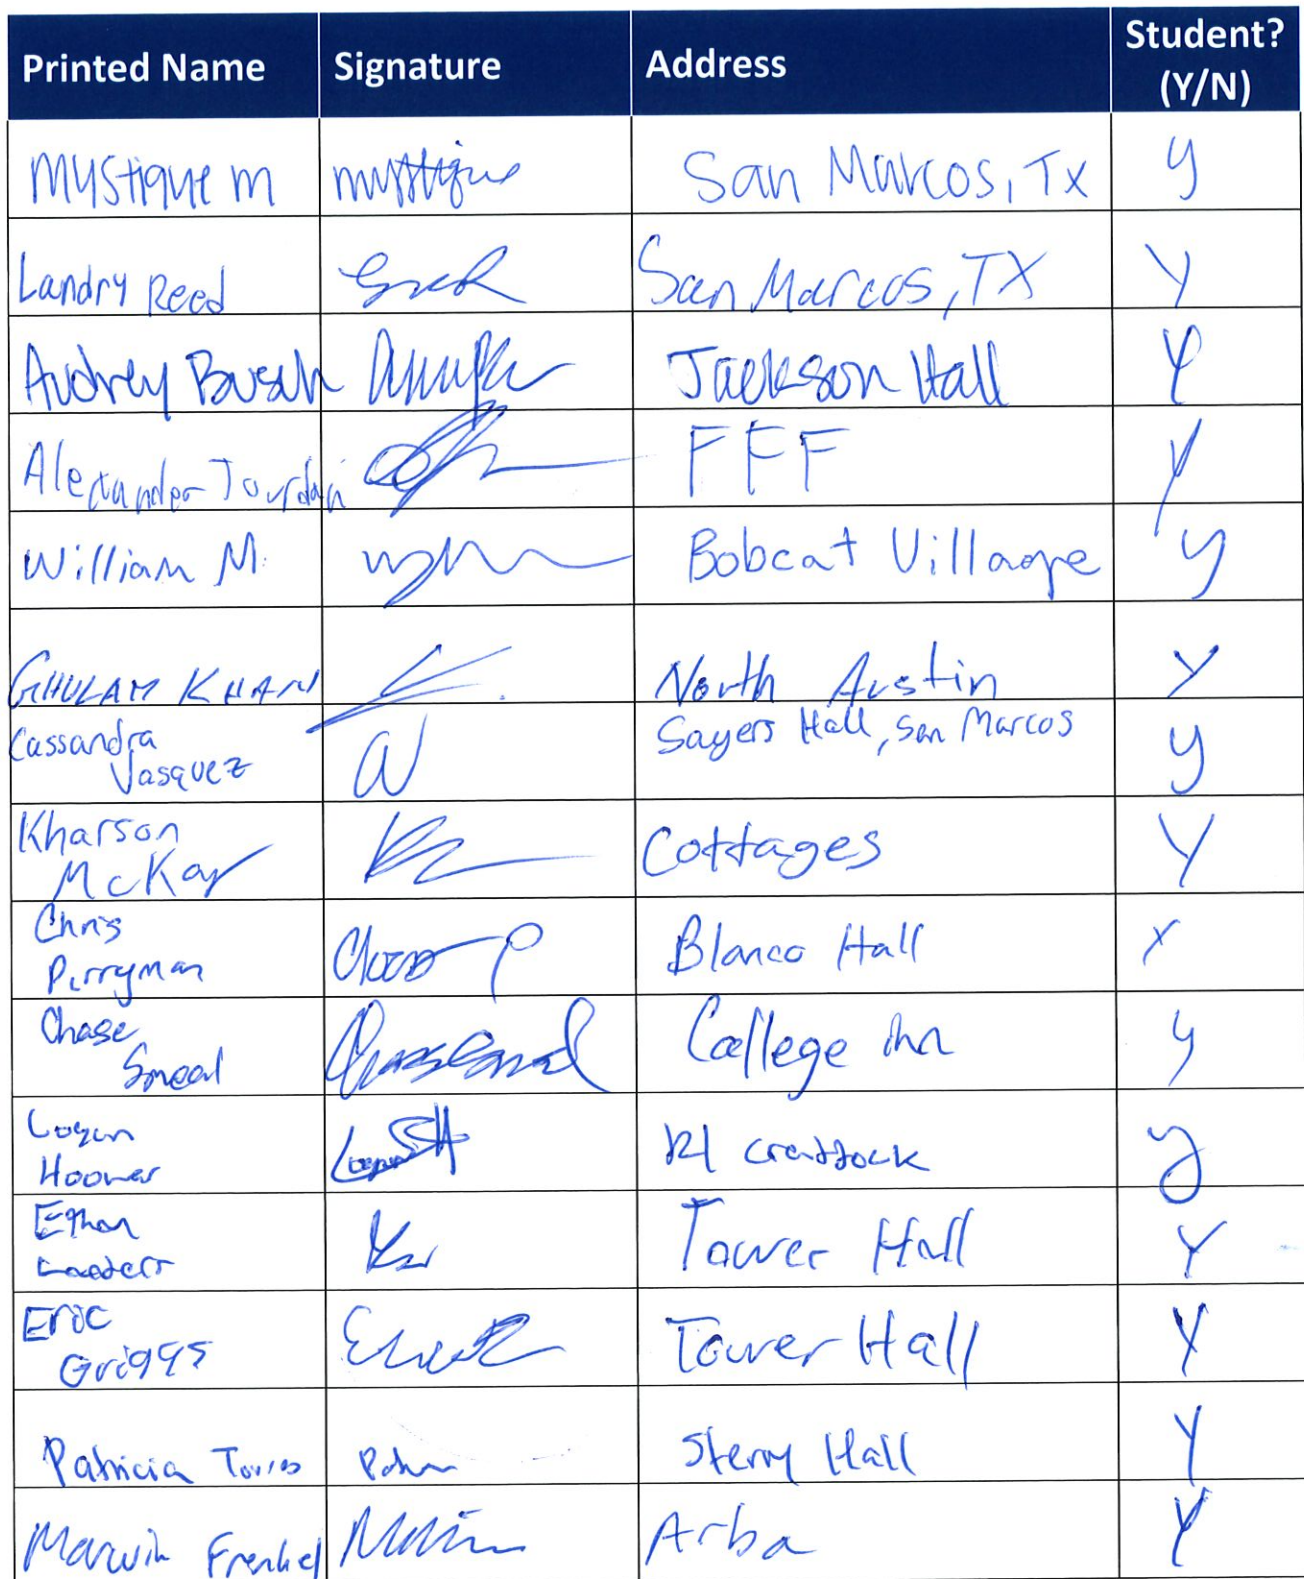 Printed Name Signature Address Student? (Y/N)
Mystique m mystique San Marcos, Tx y
Landry Reed San Marcos, TX Y
Audrey Busch Jackson Hall Y
Alexander Jourdain FFF Y
William M. Bobcat Village y
GHULAM KHAN North Austin Y
Cassandra Vasquez Sayers Hall, San Marcos y
Kharson McKay Cottages Y
Chris Perryman Blanco Hall Y
Chase Smeal College inn y
Logan Hoover craddock y
Ethan Tower Hall Y
Eric Griggs Tower Hall Y
Patricia Torres Sterry Hall Y
Marvin Frenkel Arba Y